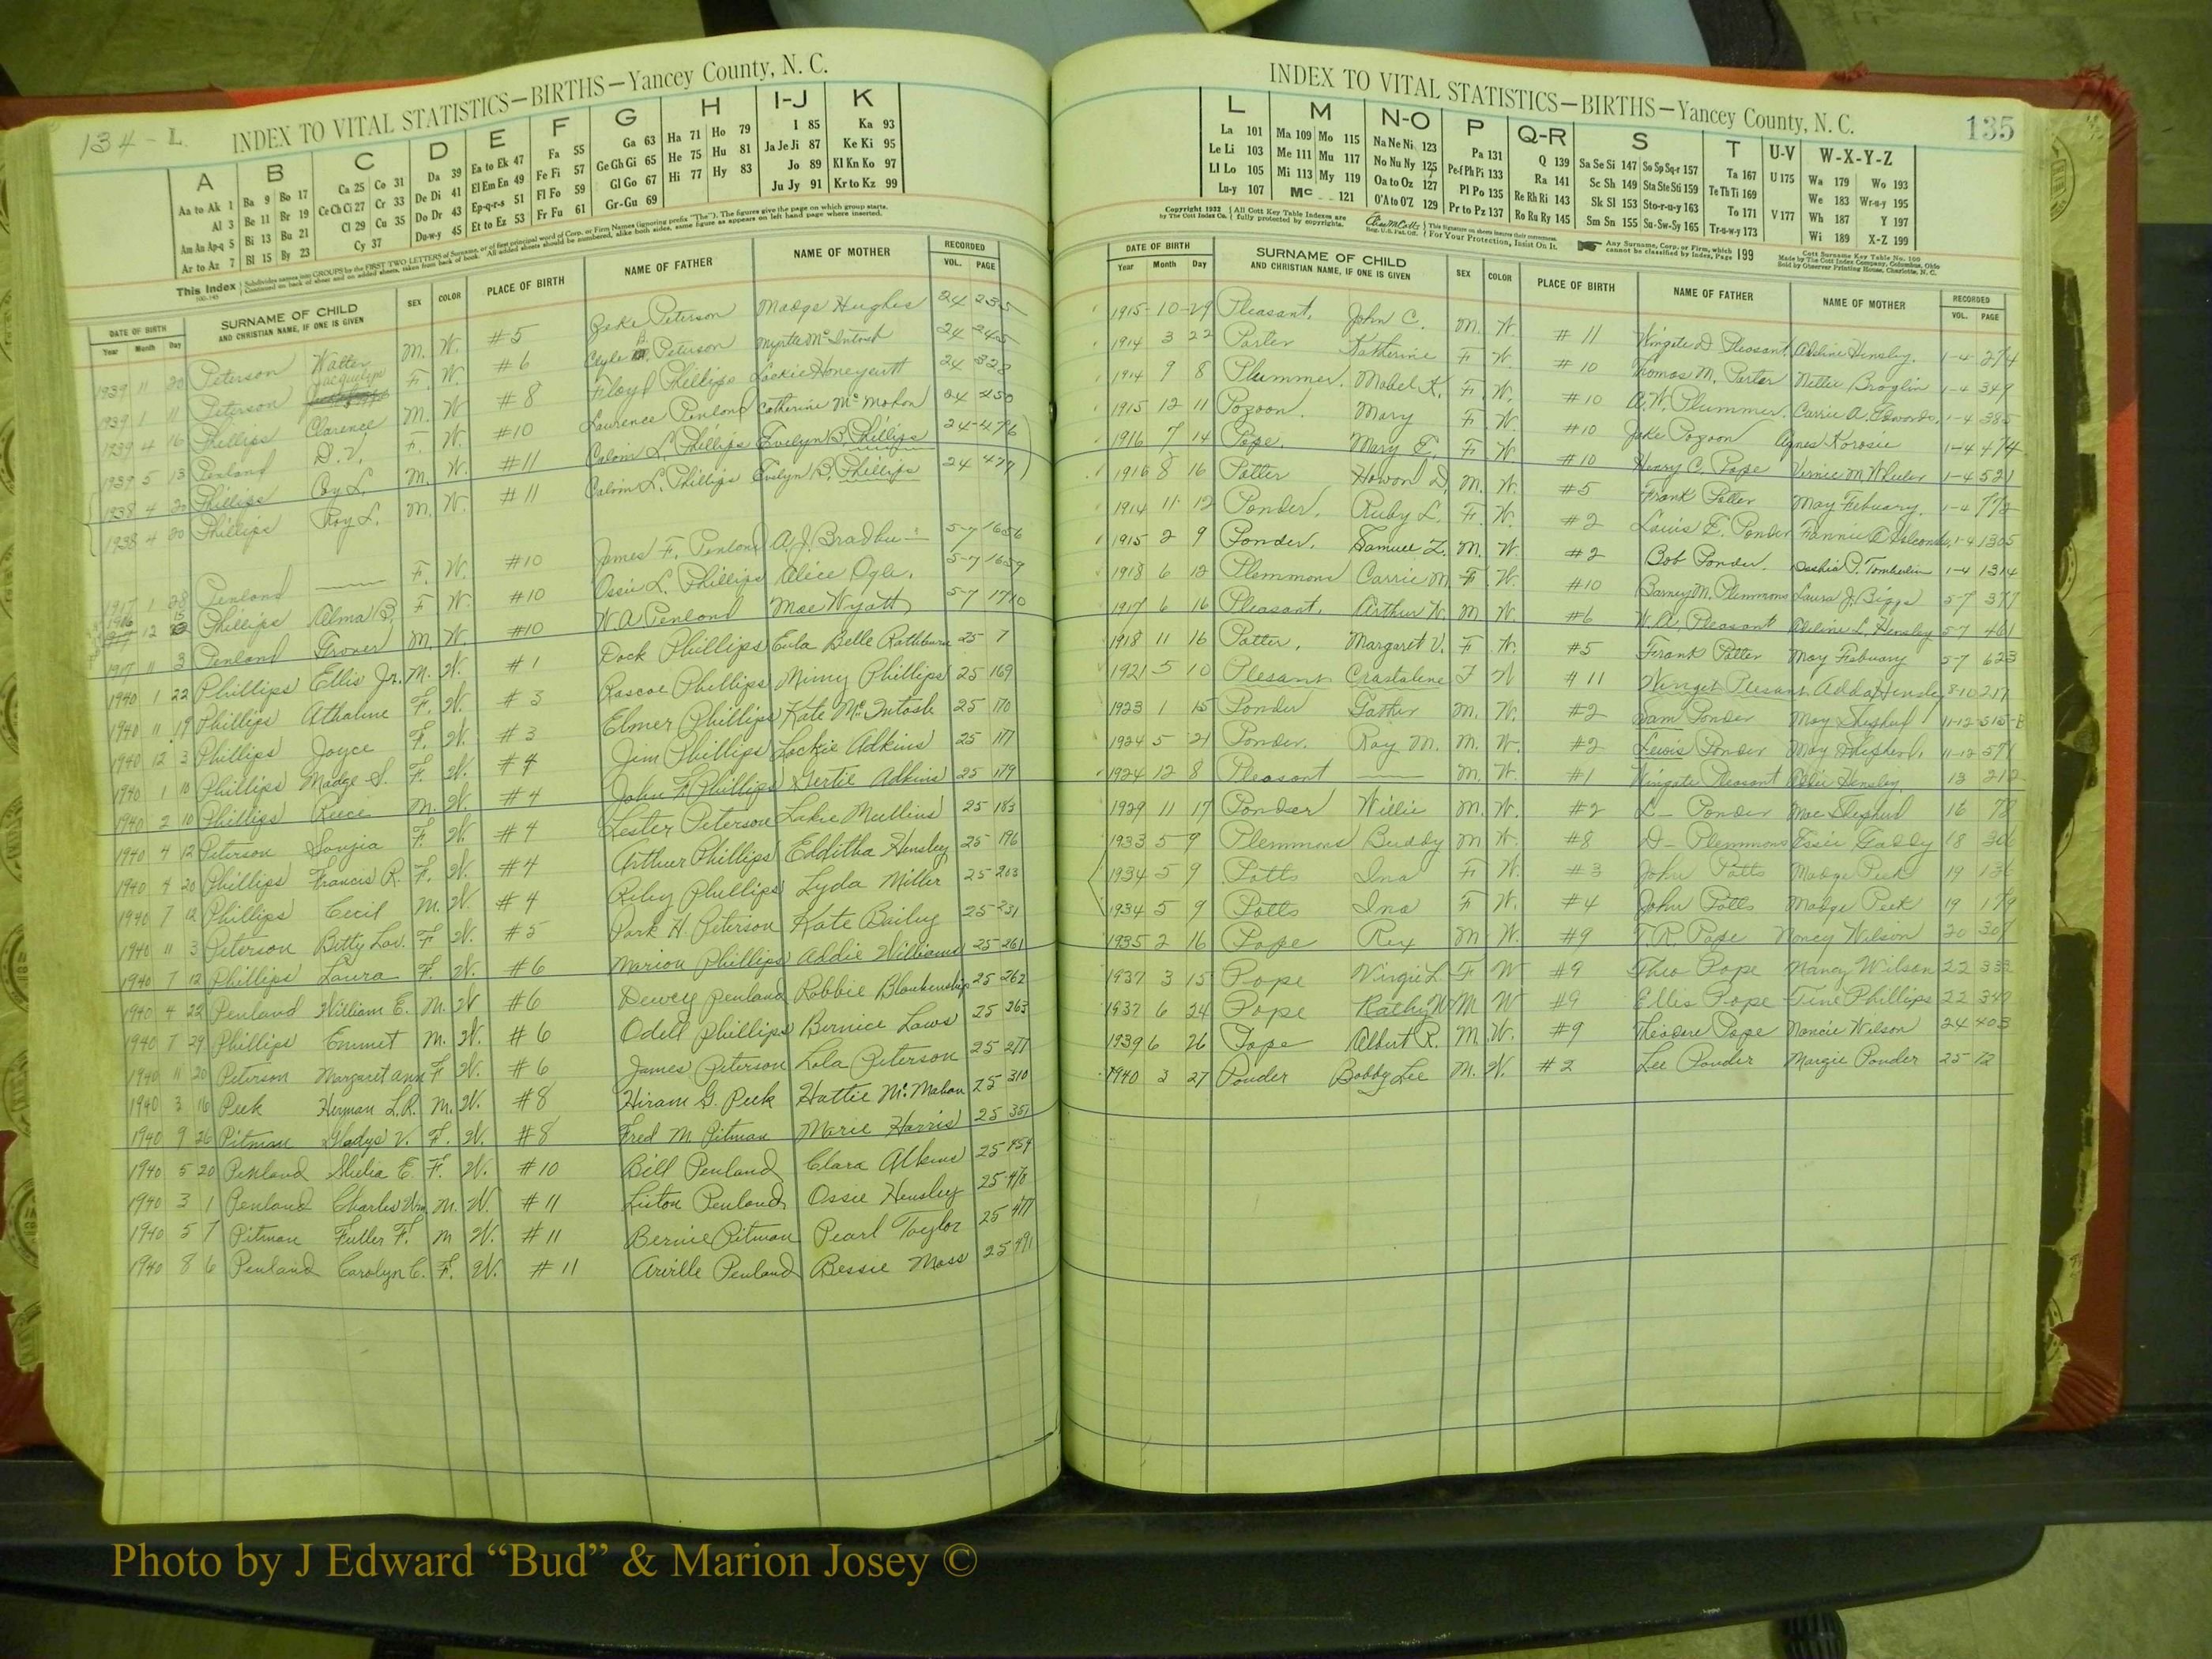 134-L
INDEX TO VITAL STATISTICS—BIRTHS—Yancey County, N. C.
A B C D E F G H I-J K
Aa to Ak 1 Ba 9 Bo 17 Ca 25 Co 31 Da 39 Ea to Ek 47 Fa 55 Ga 63 Ha 71 Ho 79 I 85 Ka 93
Al 3 Be 11 Br 19 Ce Ch Ci 27 Cr 33 De Di 41 El Em En 49 Fe Fi 57 Ge Gh Gi 65 He 75 Hu 81 Ja Je Ji 87 Ke Ki 95
Am An Ap-q 5 Bi 13 Bu 21 Cl 29 Cu 35 Do Dr 43 Ep-q-r-s 51 Fl Fo 59 Gl Go 67 Hi 77 Hy 83 Jo 89 Kl Kn Ko 97
Ar to Az 7 Bl 15 By 23 Cy 37 Du-w-y 45 Et to Ez 53 Fr Fu 61 Gr-Gu 69 Ju Jy 91 Kr to Kz 99
This Index Subdivides names into GROUPS by the FIRST TWO LETTERS of Surname, or of first principal word of Corp. or Firm Names (ignoring prefix "The"). The figures give the page on which group starts.
Continued on back of sheet and on added sheets, taken from back of book. All added sheets should be numbered, alike both sides, same figure as appears on left hand page where inserted.
DATE OF BIRTH SURNAME OF CHILD SEX COLOR PLACE OF BIRTH NAME OF FATHER NAME OF MOTHER RECORDED
Year Month Day AND CHRISTIAN NAME, IF ONE IS GIVEN VOL. PAGE
1939 11 20 Peterson Walter M. W. #5 Zeke Peterson Madge Hughes 24 235
1939 1 11 Peterson Jacquelyn F. W. #6 Clyde B. Peterson Myrtle McIntosh 24 245
1939 4 16 Phillips Clarence M. W #8 Floyd Phillips Lockie Honeycutt 24 328
1939 5 13 Penland D.V. F. W. #10 Laurence Penland Catherine McMahan 24 450
1938 4 20 Phillips Coy L. M. W. #11 Calvin L. Phillips Evelyn B. Phillips 24-476
1938 4 20 Phillips Roy L. M. W. #11 Calvin L. Phillips Evelyn B. Phillips 24 477
1917 1 28 Penland —— F. W. #10 James F. Penland A.J. 5-7 1656
1916 12 15 Phillips Alma B. F W. #10 Ossie L. Phillips Alice Ogle. 5-7 1659
1917 11 3 Penland Grover M. W. #10 W.A Penland Mae Wyatt 5-7 1710
1940 1 22 Phillips Ellis Jr. M. W. #1 Dock Phillips Eula Belle Rathburn 25 7
1940 11 19 Phillips Athaline F. W. #3 Rascoe Phillips Minny Phillips 25 169
1940 12 3 Phillips Joyce F. W. #3 Elmer Phillips Kate McIntosh 25 170
1940 1 10 Phillips Madge S. F. W. #4 Jim Phillips Lockie Adkins 25 177
1940 2 10 Phillips Reece M. W. #4 John F. Phillips Gertie Adkins 25 179
1940 4 12 Peterson Sonjia F. W #4 Lester Peterson Lakie Mullins 25 183
1940 4 20 Phillips Francis R. F. W. #4 Arthur Phillips Edditha Hensley 25 196
1940 7 12 Phillips Cecil M. W. #4 Riley Phillips Lyda Miller 25-203
1940 11 3 Peterson Betty Lou. F W. #5 Park H. Peterson Kate Bailey 25-231
1940 7 12 Phillips Laura F. W. #6 Marion Phillips Addie Williams 25-261
1940 4 22 Penland William E. M. W #6 Dewey Penland Robbie Blankenship 25-262
1940 7 29 Phillips Emmet M. W. #6 Odell Phillips Bernice Laws 25 263
1940 11 20 Peterson Margaret Ann F W. #6 James Peterson Lola Peterson 25 277
1940 3 16 Peek Herman L.R. M. W. #8 Hiram G. Peek Hattie McMahan 25 310
1940 9 26 Pitman Gladys V. F. W. #8 Fred M. Pitman Marie Harris 25 351
1940 5 20 Penland Shelia E. F. W. #10 Bill Penland Clara Atkins 25-459
1940 3 1 Penland Charles Wm. M. W. #11 Liston Penland Ossie Hensley 25-470
1940 5 7 Pitman Fuller F. M W. #11 Bernie Pitman Pearl Taylor 25 477
1940 8 6 Penland Carolyn C. F. W. #11 Arville Penland Bessie Moss 25 491
INDEX TO VITAL STATISTICS—BIRTHS—Yancey County, N. C. 135
L M N-O P Q-R S T U-V W-X-Y-Z
La 101 Ma 109 Mo 115 Na Ne Ni 123 Pa 131 Q 139 Sa Se Si 147 So Sp Sq-r 157 Ta 167 U 175 Wa 179 Wo 193
Le Li 103 Me 111 Mu 117 No Nu Ny 125 Pe-f Ph Pi 133 Ra 141 Sc Sh 149 Sta Ste Sti 159 Te Th Ti 169 We 183 Wr-u-y 195
Ll Lo 105 Mi 113 My 119 Oa to Oz 127 Pl Po 135 Re Rh Ri 143 Sk Sl 153 Sto-r-u-y 163 To 171 V 177 Wh 187 Y 197
Lu-y 107 Mc 121 O'A to O'Z 129 Pr to Pz 137 Ro Ru Ry 145 Sm Sn 155 Su-Sw-Sy 165 Tr-u-w-y 173 Wi 189 X-Z 199
Copyright 1932 by The Cott Index Co. All Cott Key Table Indexes are fully protected by copyrights. Reg. U.S. Pat. Off. This Signature on sheets insures their correctness. For Your Protection, Insist On It. Any Surname, Corp. or Firm, which cannot be classified by Index, Page 199 Cott Surname Key Table No. 100 Made by The Cott Index Company, Columbus, Ohio Sold by Observer Printing House, Charlotte, N. C.
DATE OF BIRTH SURNAME OF CHILD SEX COLOR PLACE OF BIRTH NAME OF FATHER NAME OF MOTHER RECORDED
Year Month Day AND CHRISTIAN NAME, IF ONE IS GIVEN VOL. PAGE
1915-10-29 Pleasant, John C. M. W. #11 Wingate D. Pleasant Adeline Hensley. 1-4 274
1914 3 22 Porter Katherine F W. #10 Thomas M. Porter Nettie Broglin 1-4 349
1914 9 8 Plummer. Mabel K. F. W. #10 A.W. Plummer. Carrie A. Edwards. 1-4 385
1915 12 11 Pozoon. Mary F W. #10 Jake Pozoon Agnes Korosie 1-4 474
1916 7 14 Pope. Mary E. F W. #10 Henry C. Pope Vernie M. Wheeler 1-4 521
1916 8 16 Potter D. M. W. #5 Frank Potter May February. 1-4 772
1914 11 12 Ponder. Ruby L. F. W. #2 Louis E. Ponder Fannie 1-4 1305
1915 2 9 Ponder. Samuel Z. M. W #2 Bob Ponder. P. Tomberlin 1-4 1314
1918 6 12 Plemmons Carrie M. F W. #10 Barney M. Plemmons Laura J. Biggs 5-7 377
1917 6 16 Pleasant. Arthur W. M W. #6 W.D. Pleasant Adeline L. Hensley 5-7 461
1918 11 16 Potter, Margaret V. F W. #5 Frank Potter May Febuary 5-7 623
1921 5 10 Plesant Crastalene F W #11 Winget Plesant Adda Hensley 8-10 217
1923 1 15 Ponder Gather M. W. #2 Sam Ponder May Shepherd 11-12-515-B
1924 5 21 Ponder. Ray M. M. W. #2 Lewis Ponder May Shepherd. 11-12 571
1924 12 8 Pleasant —— M. W. #1 Wingate Pleasant Addie Hensley 13 212
1929 11 17 Ponder Willie M. W. #2 L— Ponder Mae Shepherd 16 78
1933 5 9 Plemmons Buddy M W. #8 D— Plemmons Essie Gaddy 18 306
1934 5 9 Potts Ina F W. #3 John Potts Madge Peek 19 136
1934 5 9 Potts Ina F W. #4 John Potts Madge Peek 19 179
1935 2 16 Pope Rex M W. #9 T.R. Pope Nancy Wilson 20 307
1937 3 15 Pope Virgie L. F W #9 Theo Pope Nancy Wilson 22 333
1937 6 24 Pope M W #9 Ellis Pope Tine Phillips 22 347
1939 6 26 Pope Albert R. M. W. #9 Theodore Pope Nancie Wilson 24 403
1940 3 27 Ponder Bobby Lee M. W. #2 Lee Ponder Margie Ponder 25 72
Photo by J Edward “Bud” & Marion Josey ©